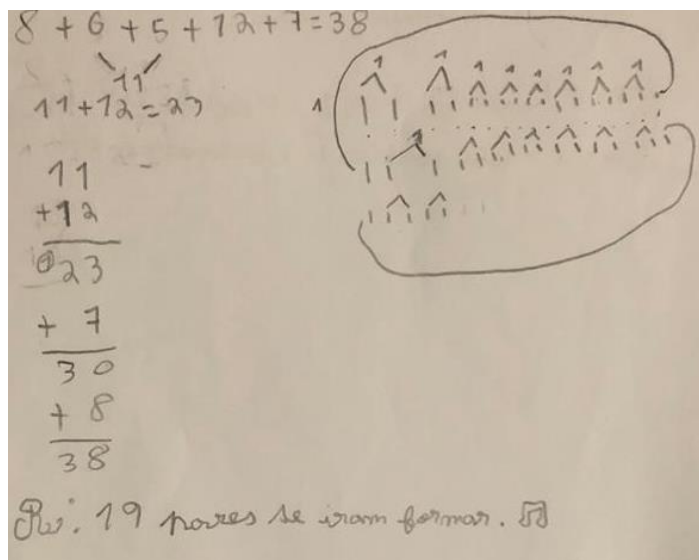 8 + 6 + 5 + 12 + 7 = 38
11
11 + 12 = 23
11
+12
23
+ 7
30
+ 8
38
R: 19 pares se iram formar.
1 1 1 1 1 1 1 1
1
1